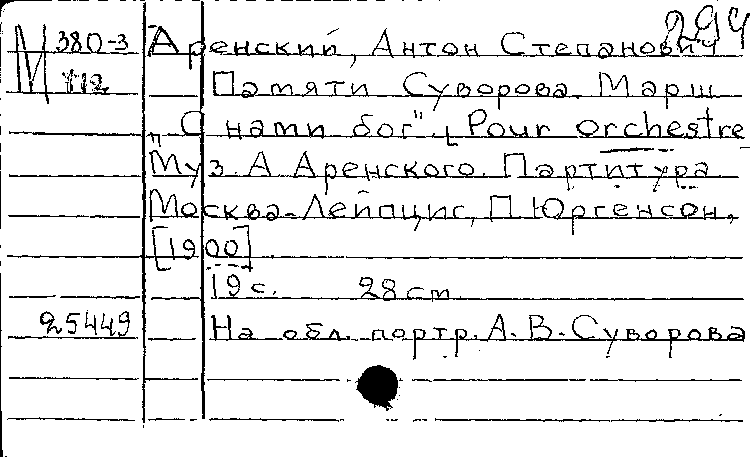 294
М 380-3 Аренский, Антон Степанович
112 Памяти Суворова. Марш
„С нами бог". [Pour orchestre
Муз. А Аренского. Партитура
Москва-Лейпциг, П. Юргенсон,
[1900]
19 с. 28 cm
25449 На обл. портр. А. В. Суворова